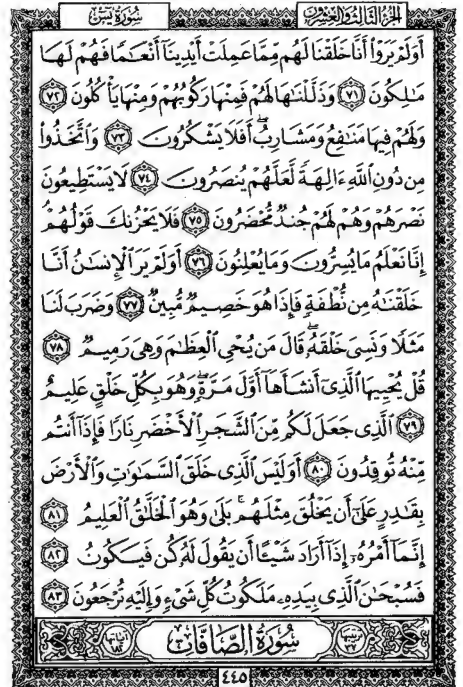 الجزء الثالث والعشرون سورة يس
أَوَلَمْ يَرَوْا۟ أَنَّا خَلَقْنَا لَهُم مِّمَّا عَمِلَتْ أَيْدِينَآ أَنْعَٰمًا فَهُمْ لَهَا
مَٰلِكُونَ ٧١ وَذَلَّلْنَٰهَا لَهُمْ فَمِنْهَا رَكُوبُهُمْ وَمِنْهَا يَأْكُلُونَ ٧٢
وَلَهُمْ فِيهَا مَنَٰفِعُ وَمَشَارِبُۖ أَفَلَا يَشْكُرُونَ ٧٣ وَٱتَّخَذُوا۟
مِن دُونِ ٱللَّهِ ءَالِهَةً لَّعَلَّهُمْ يُنصَرُونَ ٧٤ لَا يَسْتَطِيعُونَ
نَصْرَهُمْ وَهُمْ لَهُمْ جُندٌ مُّحْضَرُونَ ٧٥ فَلَا يَحْزُنكَ قَوْلُهُمْۘ
إِنَّا نَعْلَمُ مَا يُسِرُّونَ وَمَا يُعْلِنُونَ ٧٦ أَوَلَمْ يَرَ ٱلْإِنسَٰنُ أَنَّا
خَلَقْنَٰهُ مِن نُّطْفَةٍ فَإِذَا هُوَ خَصِيمٌ مُّبِينٌ ٧٧ وَضَرَبَ لَنَا
مَثَلًا وَنَسِىَ خَلْقَهُۥۖ قَالَ مَن يُحْىِ ٱلْعِظَٰمَ وَهِىَ رَمِيمٌ ٧٨
قُلْ يُحْيِيهَا ٱلَّذِىٓ أَنشَأَهَآ أَوَّلَ مَرَّةٍۖ وَهُوَ بِكُلِّ خَلْقٍ عَلِيمٌ
٧٩ ٱلَّذِى جَعَلَ لَكُم مِّنَ ٱلشَّجَرِ ٱلْأَخْضَرِ نَارًا فَإِذَآ أَنتُم
مِّنْهُ تُوقِدُونَ ٨٠ أَوَلَيْسَ ٱلَّذِى خَلَقَ ٱلسَّمَٰوَٰتِ وَٱلْأَرْضَ
بِقَٰدِرٍ عَلَىٰٓ أَن يَخْلُقَ مِثْلَهُمۚ بَلَىٰ وَهُوَ ٱلْخَلَّٰقُ ٱلْعَلِيمُ ٨١
إِنَّمَآ أَمْرُهُۥٓ إِذَآ أَرَادَ شَيْـًٔا أَن يَقُولَ لَهُۥ كُن فَيَكُونُ ٨٢
فَسُبْحَٰنَ ٱلَّذِى بِيَدِهِۦ مَلَكُوتُ كُلِّ شَىْءٍ وَإِلَيْهِ تُرْجَعُونَ ٨٣
ترتيبها ٣٧ سُورَةُ الصَّافَّاتِ آياتها ١٨٢
٤٤٥